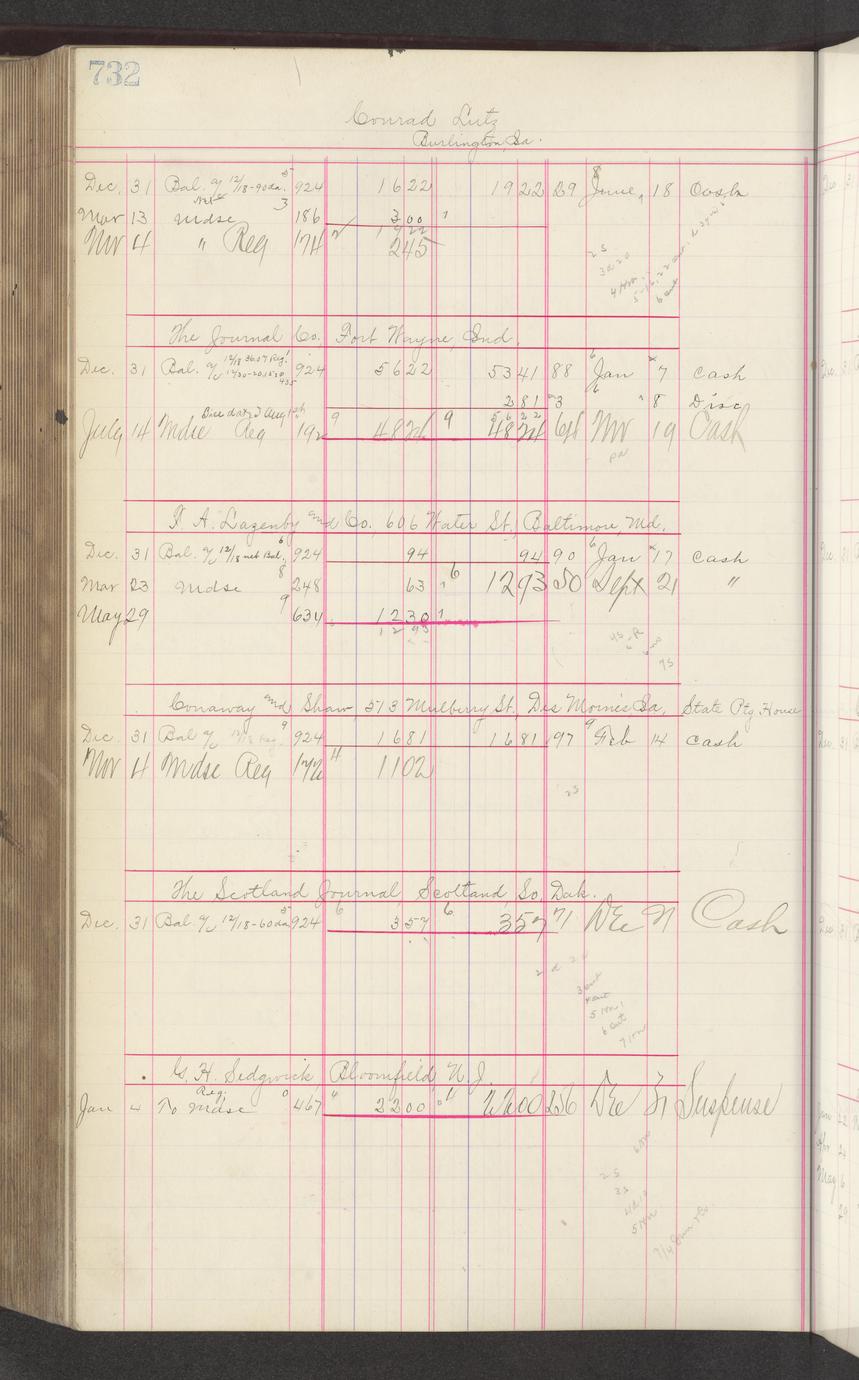 732
Conrad Lutz
Burlington, Ia.
Dec. 31 Bal. 12/18-90da. 924 1622 1922 29 June 18 Cash
Net 3
Mar 13 Mdse 186 300
1922
Nov 4 " Reg 174 245
The Journal Co. Fort Wayne, Ind.
Dec. 31 Bal. 924 5622 5341 88 Jan 7 Cash
281 3 " 8 Disc
5622
July 14 Mdse Reg 192 4824 4824 64 Nov 19 Cash
F. A. Lazenby and Co. 606 Water St., Baltimore, Md.
Dec. 31 Bal. 12/18 net Bal. 924 94 94 90 Jan 17 Cash
Mar 23 Mdse 248 63 1293 50 Sept 21 "
May 29 634 1230
1293
Conaway and Shaw, 513 Mulberry St., Des Moines Ia. State Ptg. House
Dec. 31 Bal. 924 1681 1681 97 Feb 14 Cash
Nov 4 Mdse Reg 172 1102
25
The Scotland Journal, Scotland, So. Dak.
Dec. 31 Bal. 12/18-60da 924 357 357 71 Dec 21 Cash
G. H. Sedgwick Bloomfield, N. J.
Reg.
Jan 4 To Mdse 467 2200 2200 256 Dec 31 Suspense